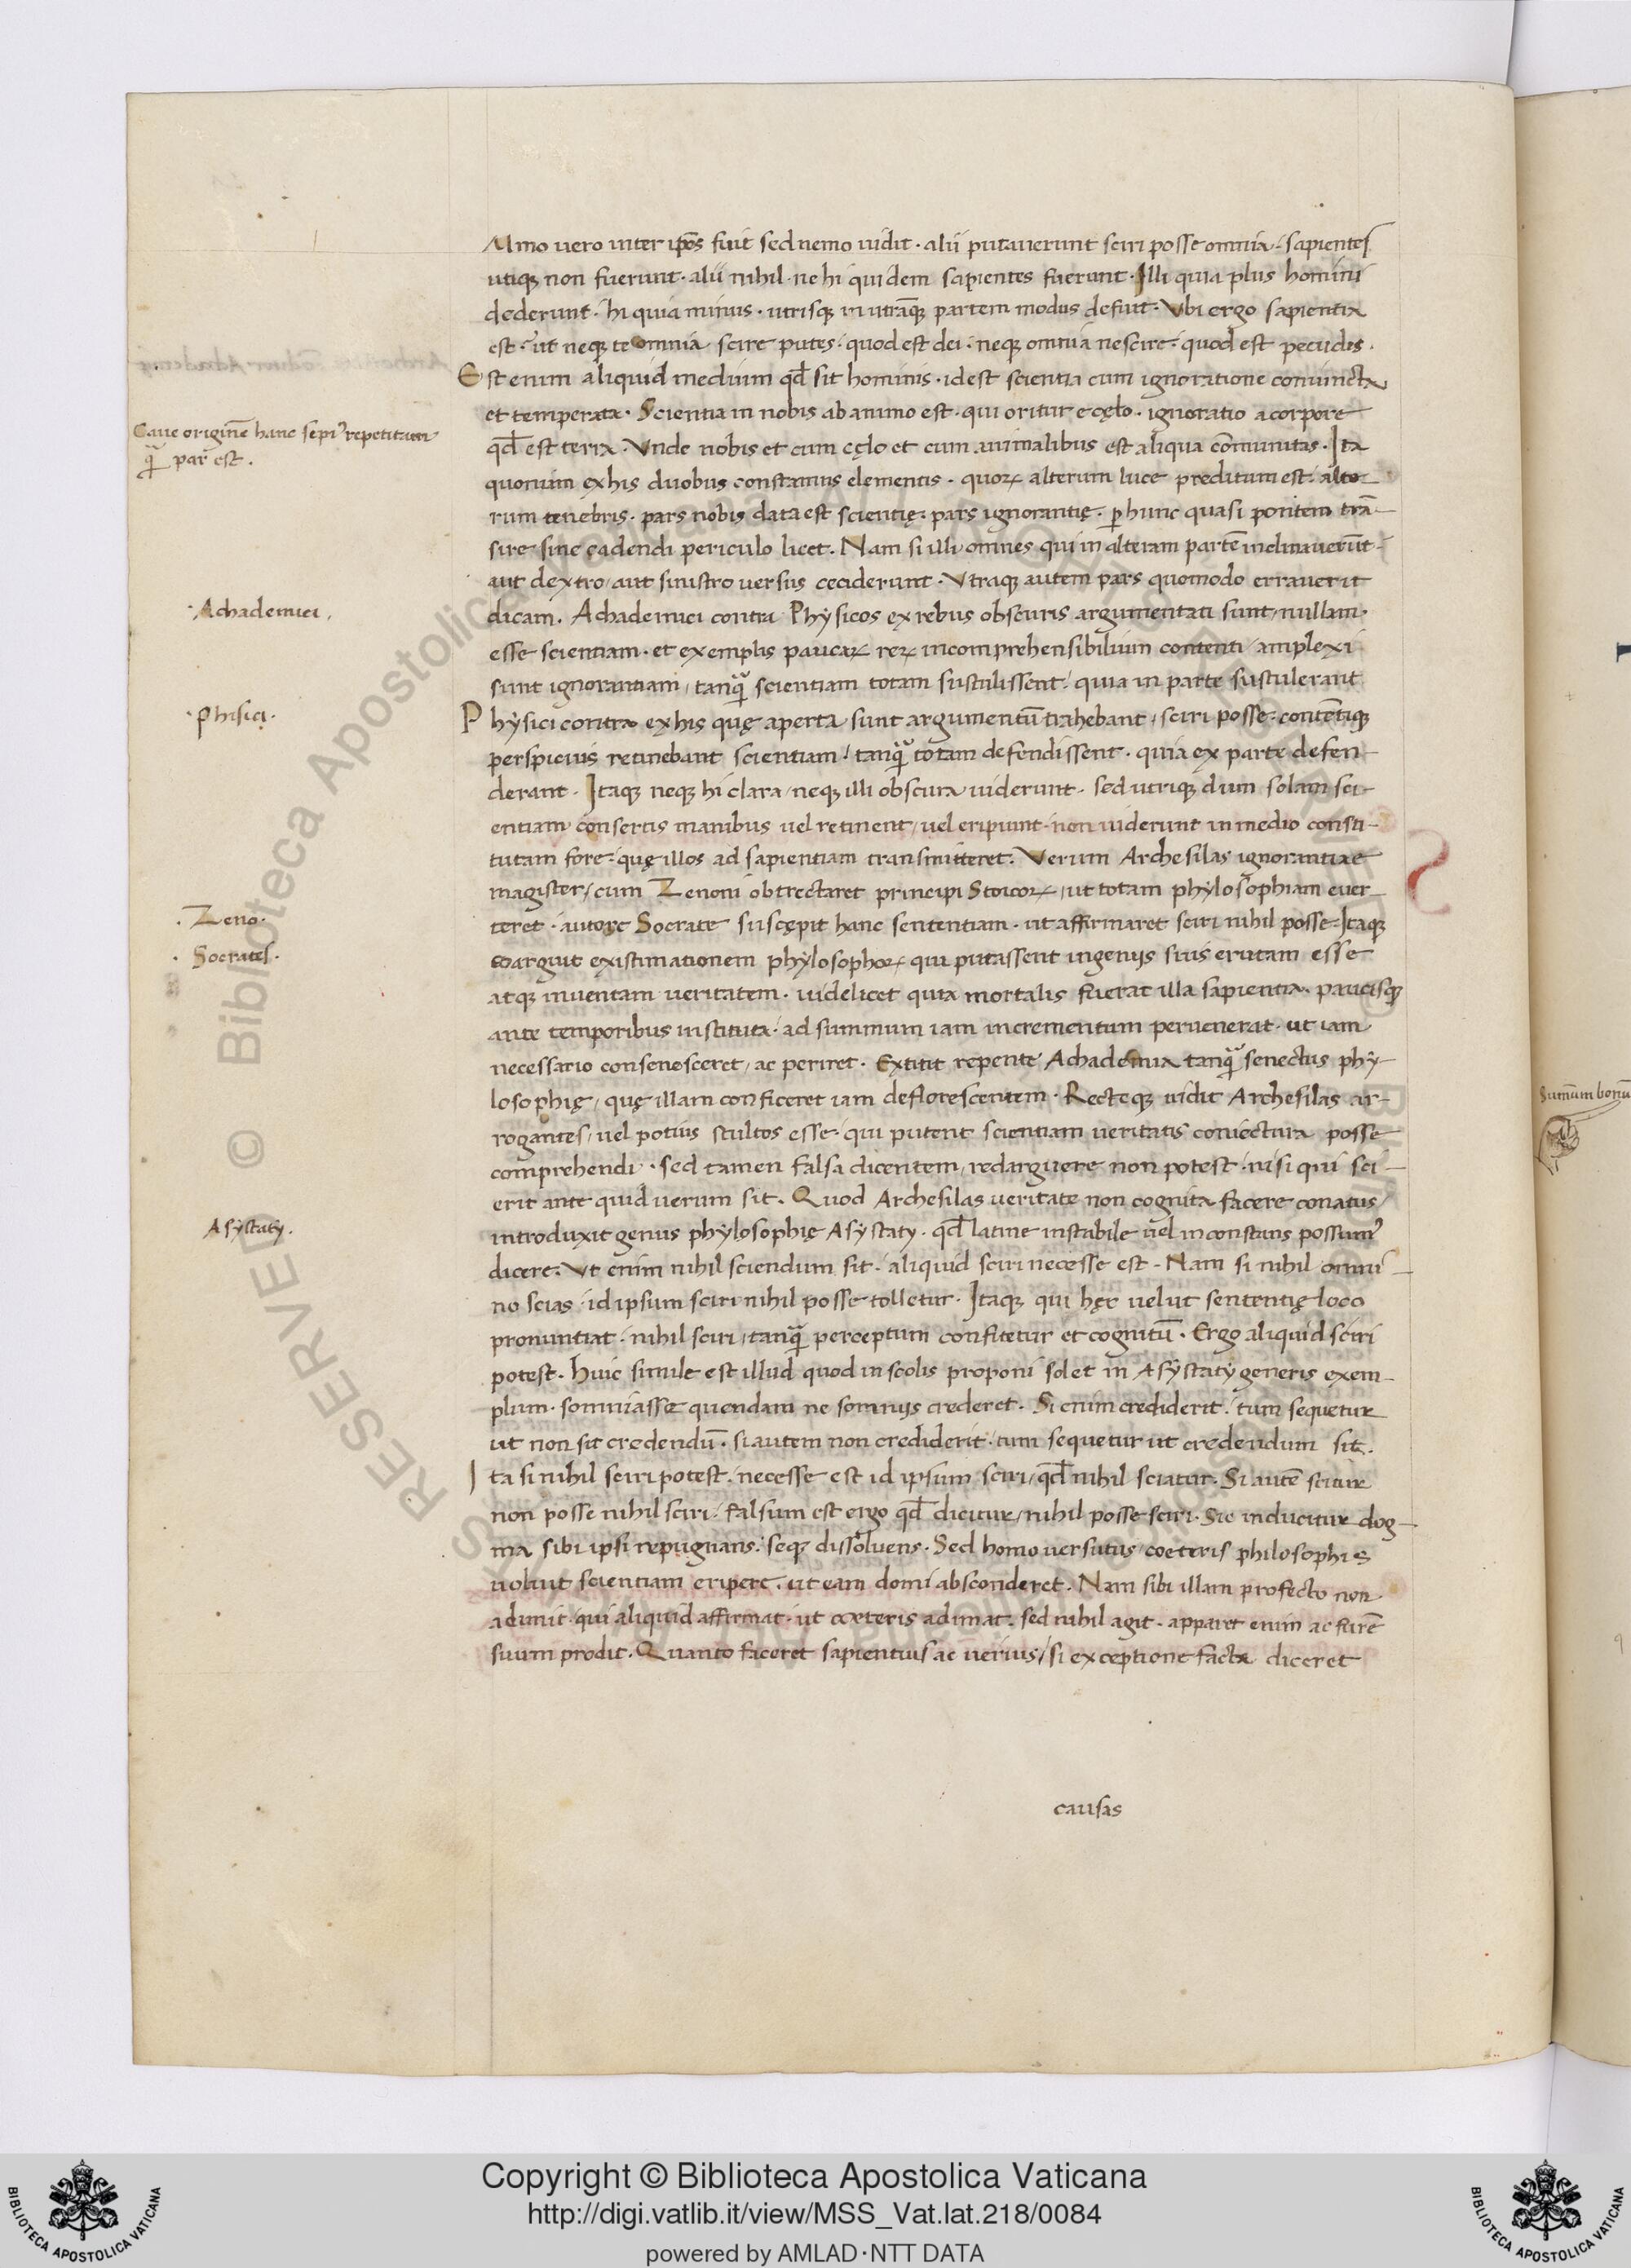 Immo vero inter ipōs fuit sed nemo uidit · alii putauerunt sciri posse omnia · sapientes
utiq; non fuerunt · alii nihil · ne hi quidem sapientes fuerunt · Illi quia plus homini
dederunt · hi quia minus · utrisq; in utrāq; partem modus defuit · Vbi ergo sapientia
est · ut neq; te omnia scire putes · quod est dei · neq; omnia nescire · quod est pecudis ·
Est enim aliquid medium qđ sit hominis · idest scientia cum ignoratione coniuncta
et temperata · Scientia in nobis ab animo est · qui oritur e cęlo · ignoratio a corpore
Caue originē hanc sepiꝰ repetitam
qđ est terra · Vnde nobis et cum cęlo et cum animalibus est aliqua cōmunitas · Ita
qͣ par est .
quonium ex his duobus constamus elementis · quoꝝ alterum luce preditum est · alte
rum tenebris · pars nobis data est scientię · pars ignorantię · ꝑ hunc quasi pontem trā-
sire sine cadendi periculo licet . Nam si illi omnes qui in alteram partē inclinauerūt
aut dextro / aut sinistro uersus ceciderunt · Vtraq; autem pars quomodo errauerit
· Achademici .
dicam . Achademici contra Physicos ex rebus obscuris argumentati sunt / nullam ·
esse scientiam · et exemplis paucaꝝ reꝝ incomprehensibilium contenti / amplexi
sunt ignorantiam / tanqͣ scientiam totam sustulissent · quia in parte sustulerant
· Phisici ·
Physici contra ex his quę aperta sunt argumentū trahebant / sciri posse · contētiq;
perspicuis retinebant scientiam / tanqͣ totam defendissent · quia ex parte defen-
derant · Itaq; neq; hi clara / neq; illi obscura uiderunt · sed utriq; dum solam sci-
entiam consertis manibus uel retinent / uel eripiunt · non uiderunt in medio consti-
tutam fore · quę illos ad sapientiam transmitteret . Verum Archesilas ignorantiae
magister / cum Zenoni obtrectaret principi Stoicoꝝ / ut totam phylosophiam euer-
· Zeno ·
teret · autore Socrate suscępit hanc sententiam · ut affirmaret sciri nihil posse · Itaq;
· Socrates ·
coarguit existimationem phylosophoꝝ qui putassent ingenijs suis erutam esse
atq; inuentam ueritatem · uidelicet quia mortalis fuerat illa sapientia · paucisq;
ante temporibus instituta · ad summum iam incrementum peruenerat · ut iam
necessario consenesceret / ac periret · Extitit repente Achademia tanqͣ senectus phy-
losophię / quę illam conficeret iam deflorescentem · Recteq; uidit Archesilas ar-
rogantes / uel potius stultos esse · qui putent scientiam ueritatis coniectura posse
comprehendi · sed tamen falsa dicentem / redarguere non potest · nisi qui sci-
erit ante quid uerum sit . Quod Archesilas ueritate non cognita facere conatus /
Asystaty .
introduxit genus phylosophię Asystaty · qđ latine instabile uel inconstans possumꝰ
dicere . Vt enim nihil sciendum sit · aliquid sciri necesse est - Nam si nihil omni-
no scias · id ipsum sciri nihil posse tolletur · Itaq; qui hęc uelut sententię loco
pronuntiat · nihil sciri / tanqͣ perceptum confitetur et cognitū · Ergo aliquid sciri
potest . Huic simile est illud quod in scolis proponi solet in Asystaty generis exem-
plum · somniasse quendam ne somnijs crederet · Si enim crediderit · tum sequetur
ut non sit credendū · si autem non crediderit · tum sequetur ut credendum sit .
Ita si nihil sciri potest · necesse est id ipsum sciri / qđ nihil sciatur · Si autē scitur
non posse nihil sciri · falsum est ergo qđ dicitur / nihil posse sciri · Sic inducitur dog-
ma sibi ipsi repugnans · seq; dissoluens · Sed homo uersutus / coeteris philosophis
uoluit scientiam eripere · ut eam domi absconderet . Nam sibi illam profecto non
adimit · qui aliquid affirmat · ut cæteris adimat . sed nihil agit · apparet enim ac furē
suum prodit . Quanto faceret sapientius ac uerius / si exceptione facta diceret
causas
Sum̄um bonū
Copyright © Biblioteca Apostolica Vaticana
http://digi.vatlib.it/view/MSS_Vat.lat.218/0084
powered by AMLAD·NTT DATA
BIBLIOTECA APOSTOLICA VATICANA
BIBLIOTECA APOSTOLICA VATICANA